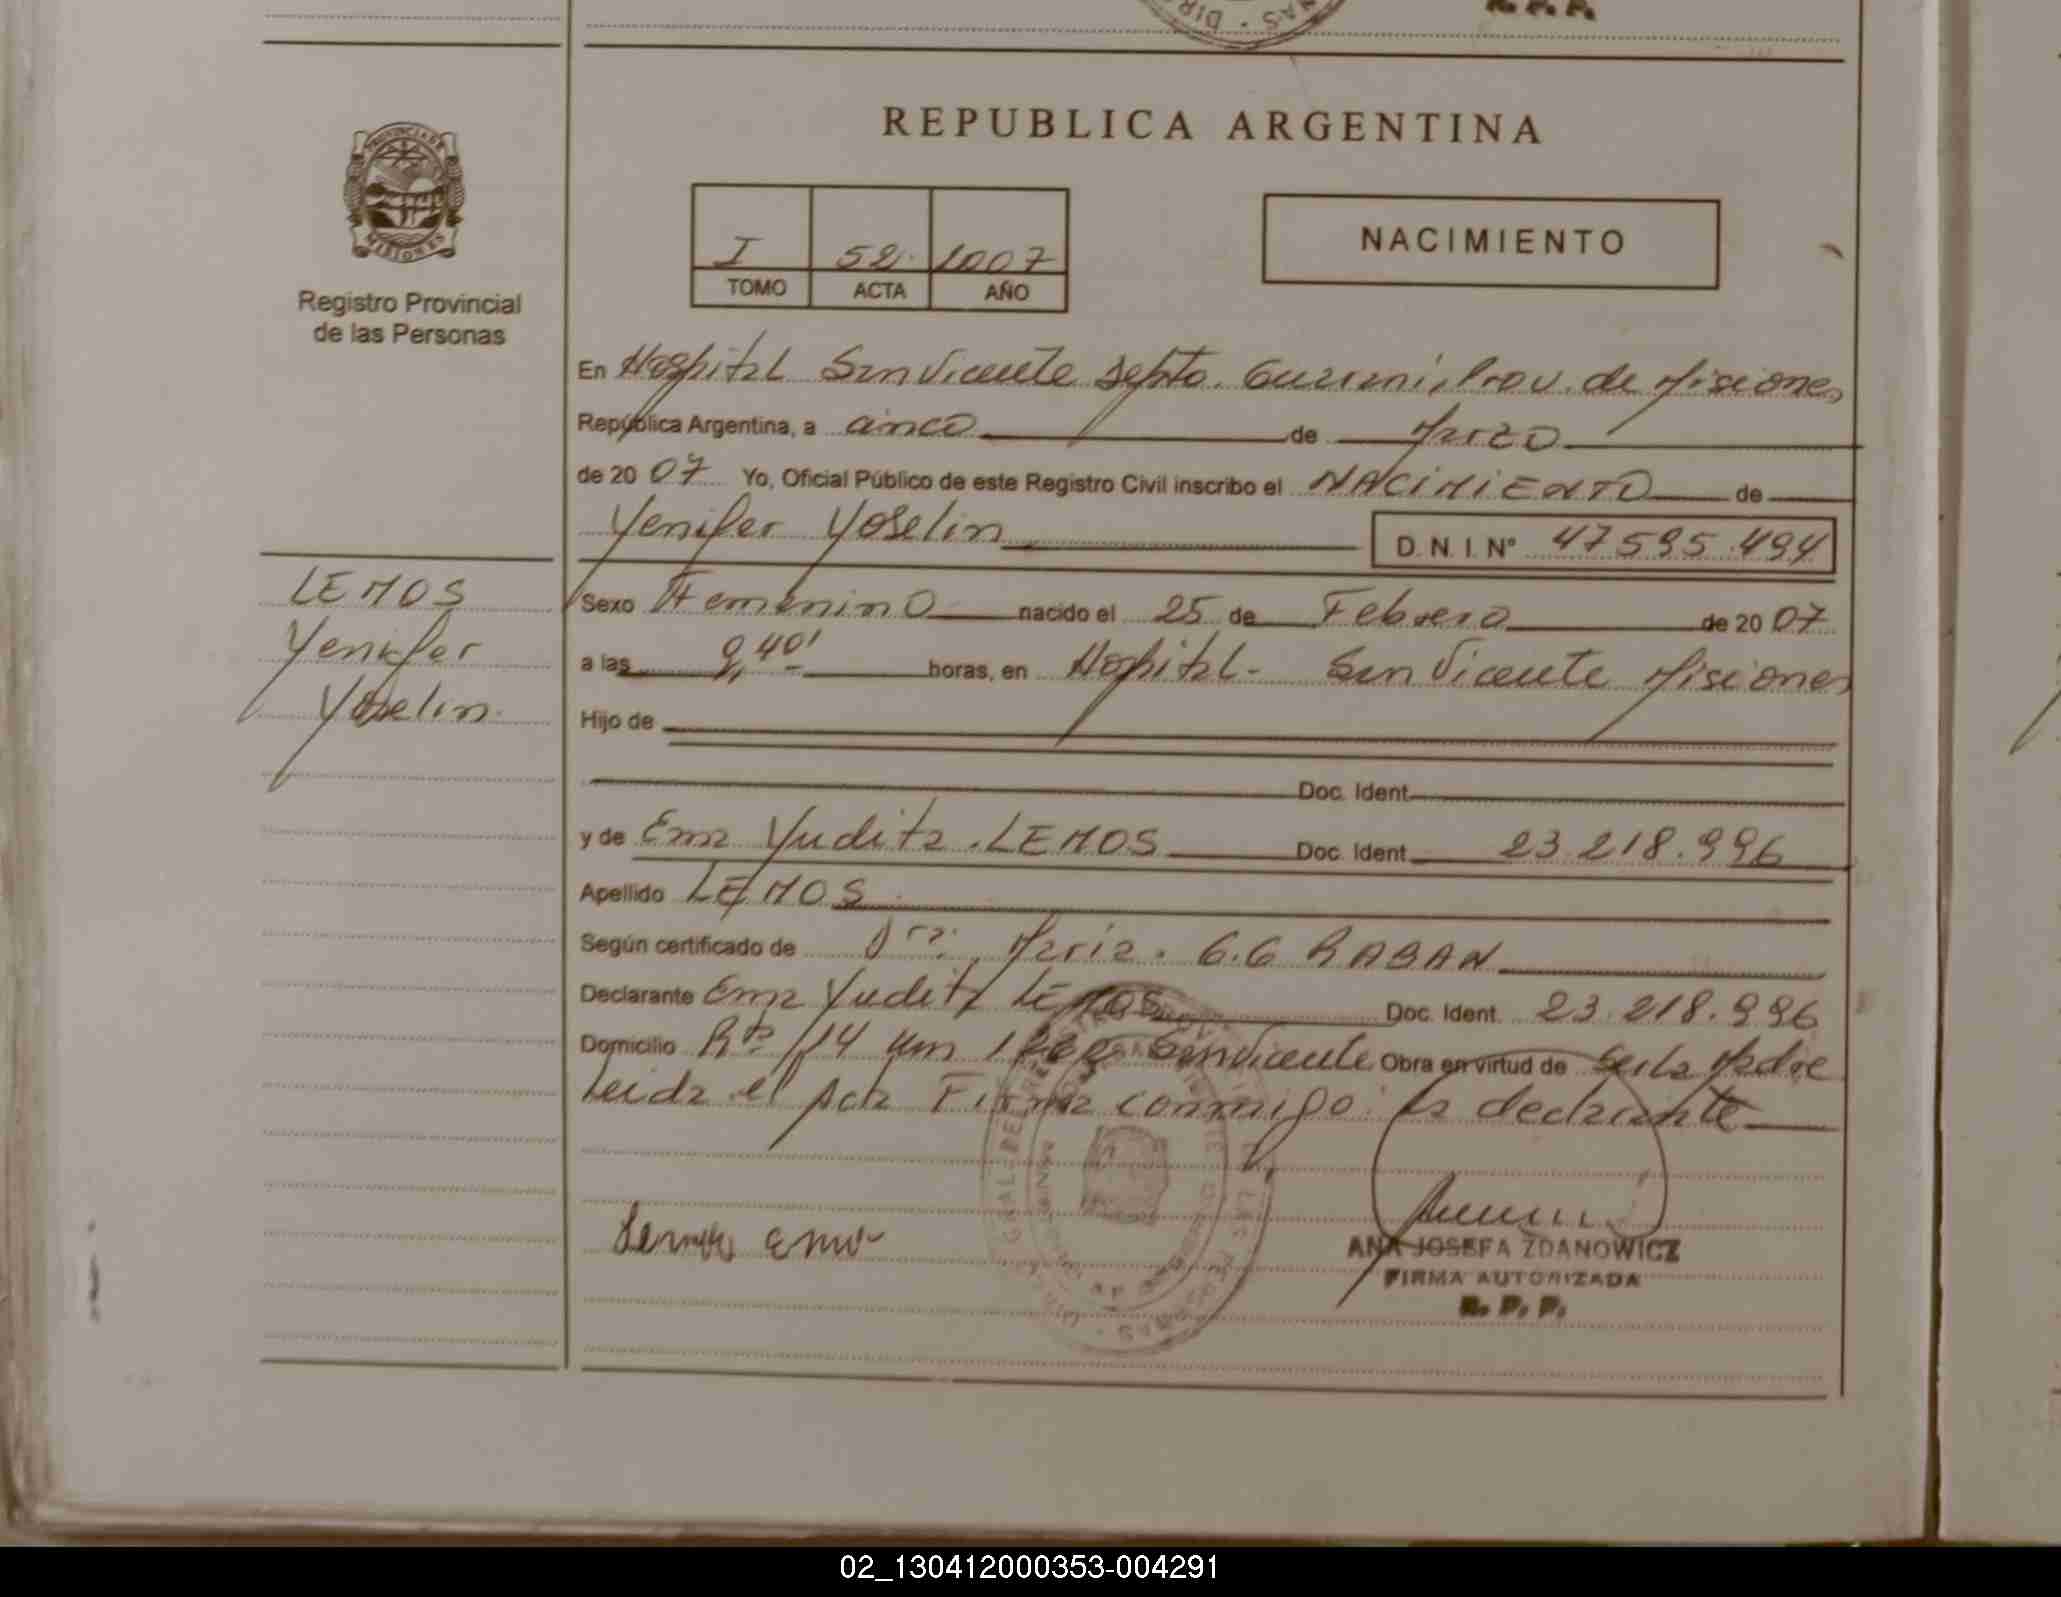 R. P. P.
REPUBLICA ARGENTINA
PROVINCIA DE
MISIONES
Registro Provincial
de las Personas
I 52. 2007
TOMO ACTA AÑO
NACIMIENTO
En Hospital San Vicente Depto. Guarani, Prov. de Misiones
República Argentina, a cinco de Marzo
de 2007 Yo, Oficial Público de este Registro Civil inscribo el NACIMIENTO de
Yenifer Yoselin D.N.I. Nº 47.595.494
LEMOS
Yenifer
Yoselin.
Sexo Femenino nacido el 25 de Febrero de 2007
a las 9,40' horas, en Hospital - San Vicente Misiones
Hijo de
Doc. Ident.
y de Ema Yudita. LEMOS Doc. Ident. 23.218.996
Apellido LEMOS
Según certificado de Dra. Maria. G.G RABAN
Declarante Ema Yudita LEMOS Doc. Ident. 23.218.996
Domicilio Rta 14 Km San Vicente Obra en virtud de Ser la Madre
Leida el Acta Firma conmigo: la declarante
Lemos Ema
ANA JOSEFA ZDANOWICZ
FIRMA AUTORIZADA
R. P. P.
02_130412000353-004291